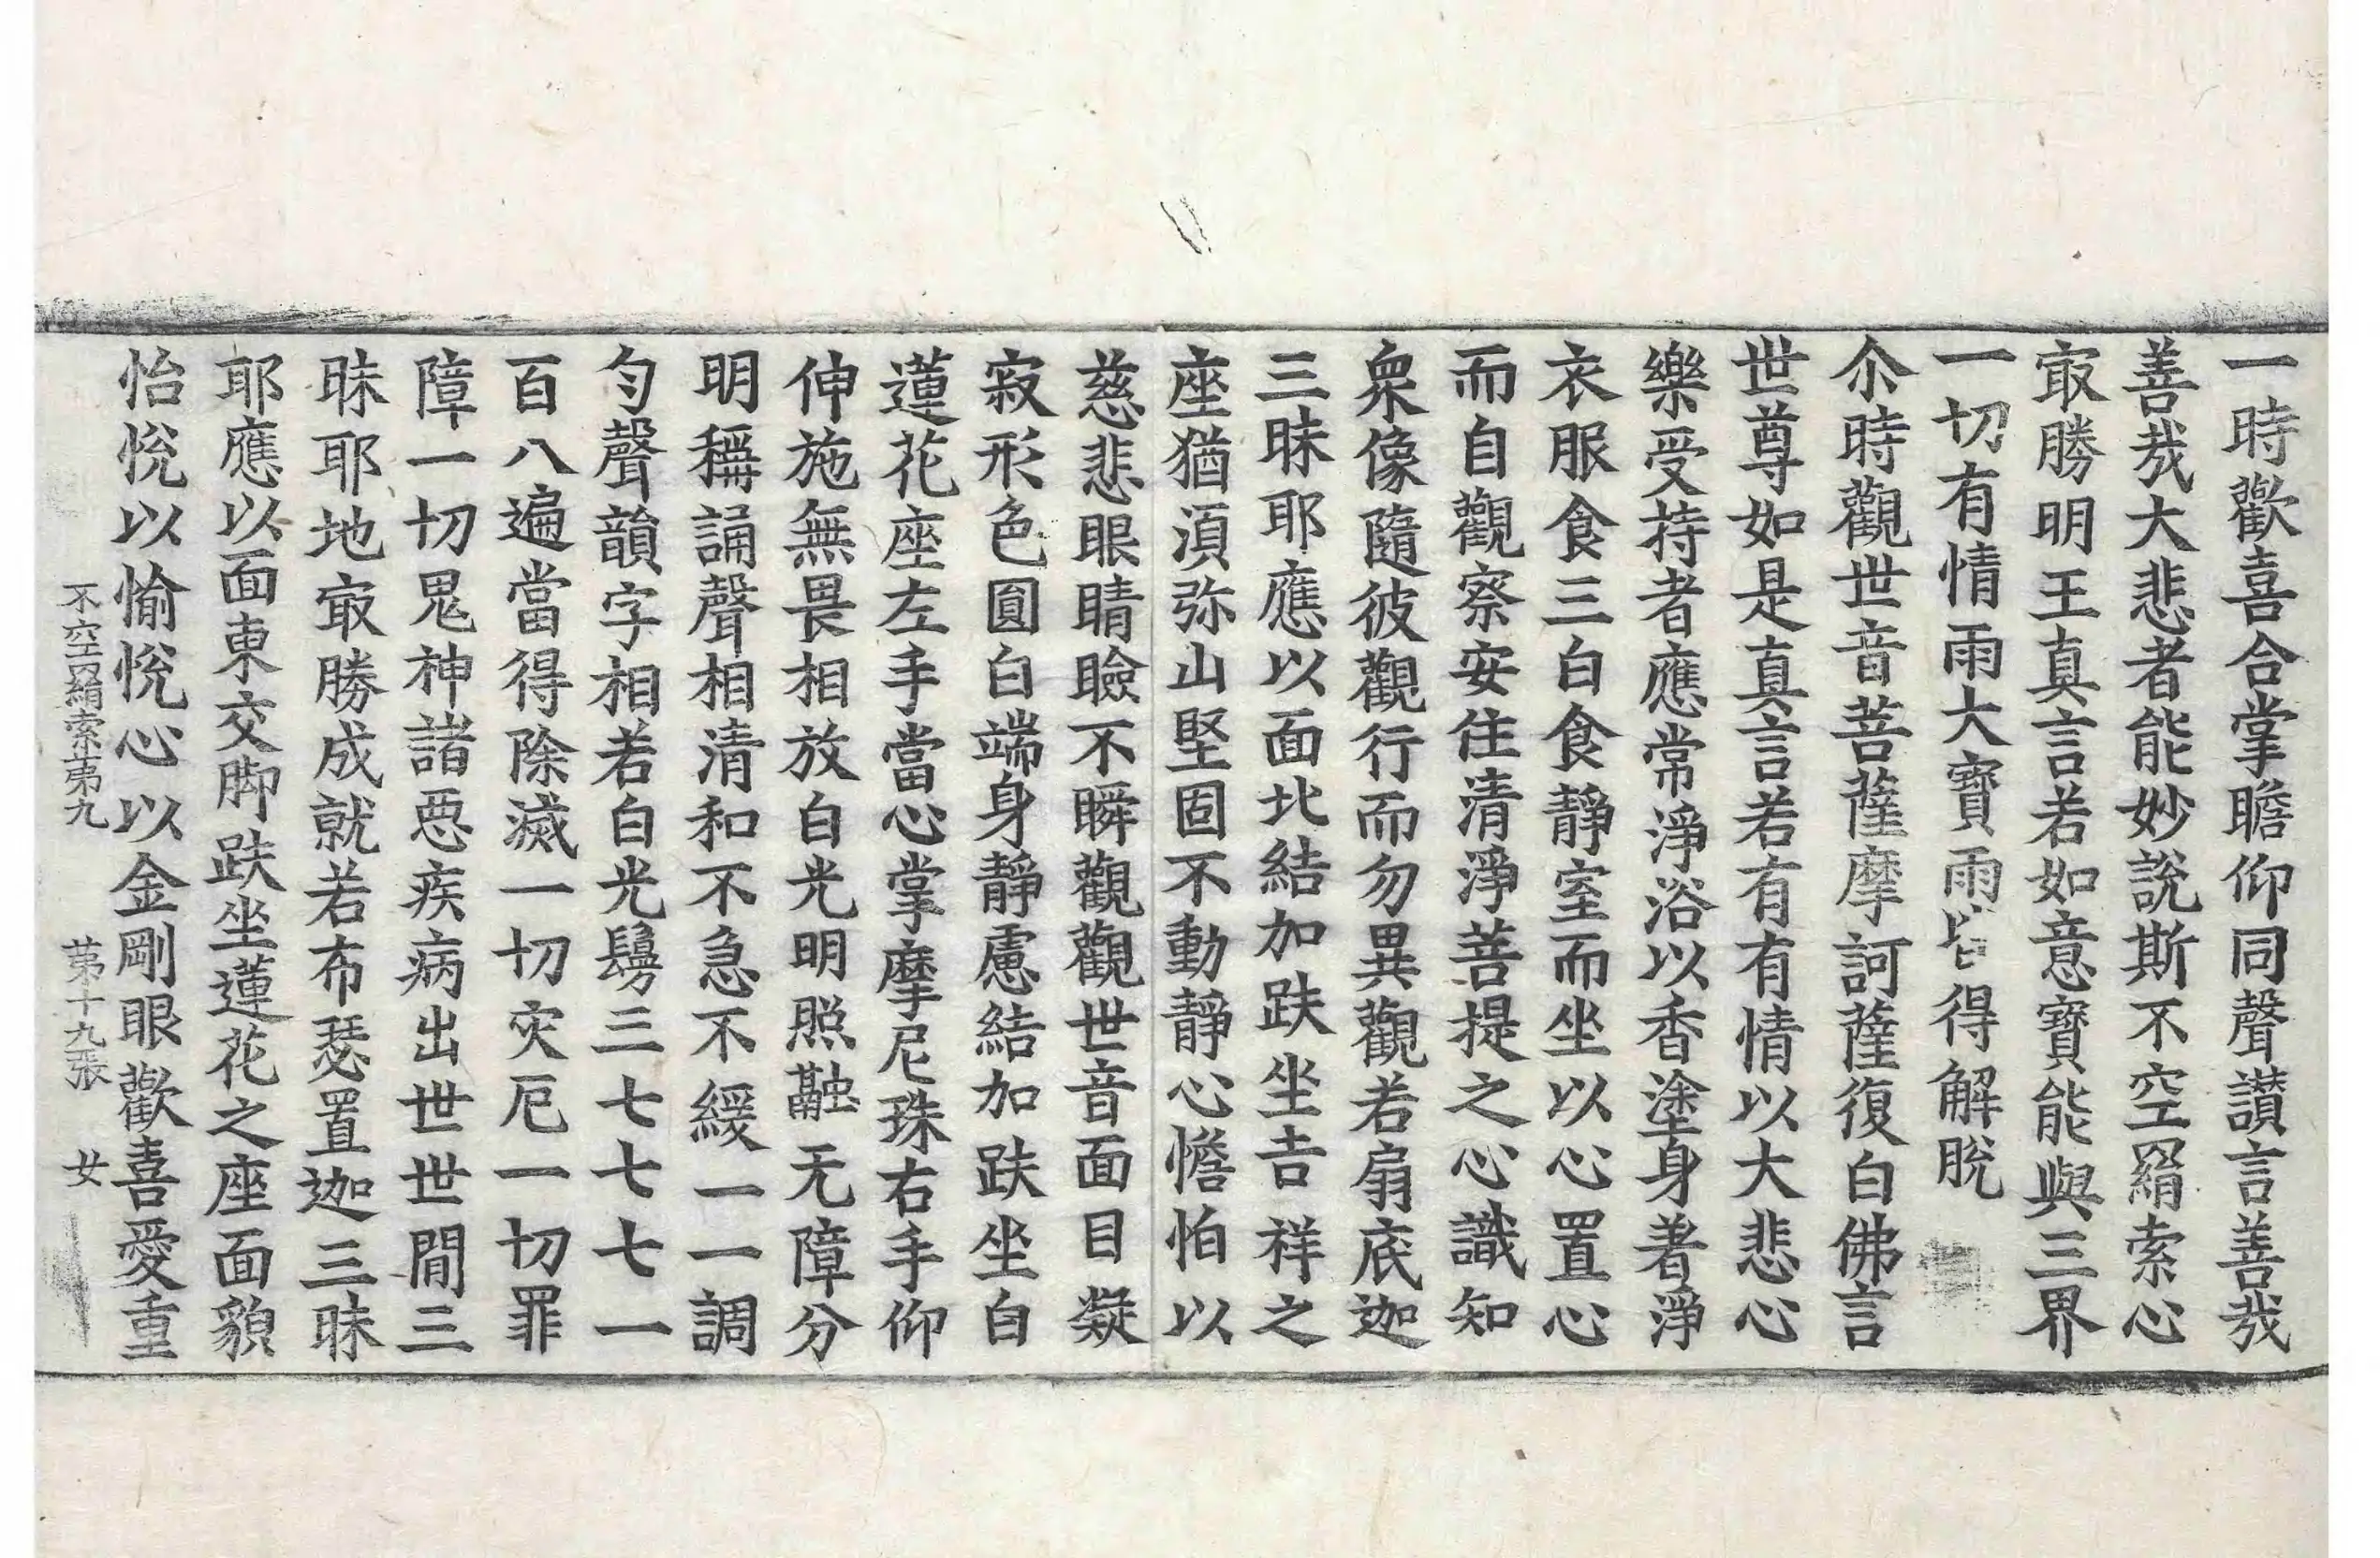 一時歡喜合掌瞻仰同聲讃言善哉
善哉大悲者能妙說斯不空羂索心
㝡勝明王真言若如意寶能與三界
一切有情雨大寶雨皆得解脫
尒時觀世音菩薩摩訶薩復白佛言
世尊如是真言若有有情以大悲心
樂受持者應常淨浴以香塗身著淨
衣服食三白食靜室而坐以心置心
而自觀察安住清淨菩提之心識知
衆像隨彼觀行而勿異觀若扇底迦
三昧耶應以面北結加趺坐吉祥之
座猶湏弥山堅固不動靜心憺怕以
慈悲眼睛瞼不瞬觀觀世音面目凝
寂形色圓白端身靜慮結加趺坐白
蓮花座左手當心掌摩尼珠右手仰
伸施無畏相放白光明照融无障分
明稱誦聲相清和不急不緩一一調
勻聲韻字相若白光鬘三七七七一
百八遍當得除滅一切灾厄一切罪
障一切鬼神諸惡疾病出世世間三
昧耶地㝡勝成就若布瑟置迦三昧
耶應以面東交脚趺坐蓮花之座面貌
怡悅以愉悅心以金剛眼歡喜愛重
不空羂索苐九 苐十九張 女